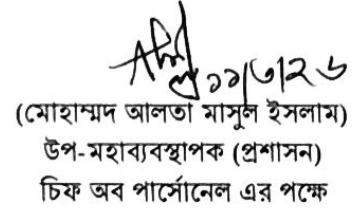 ১১/৩/২৬
(মোহাম্মদ আলতা মাসুল ইসলাম)
উপ-মহাব্যবস্থাপক (প্রশাসন)
চিফ অব পার্সোনেল এর পক্ষে